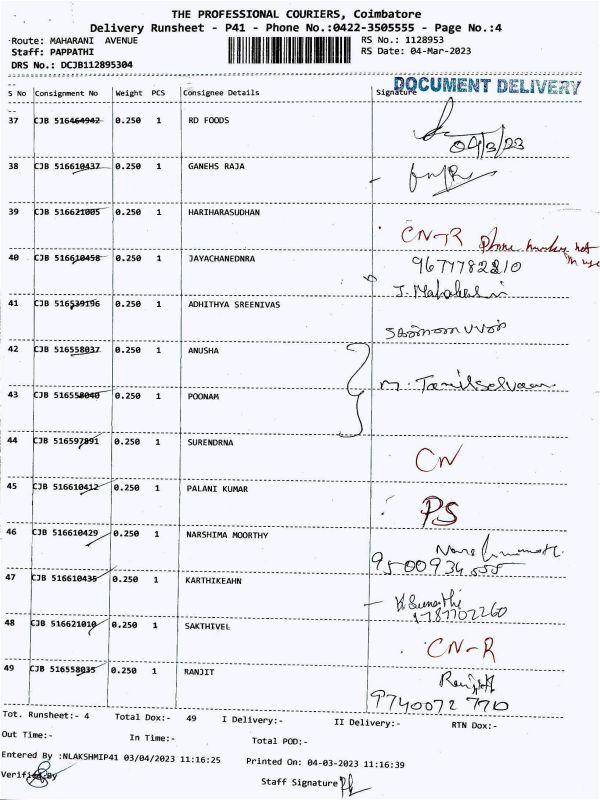 THE PROFESSIONAL COURIERS, Coimbatore
Delivery Runsheet - P41 - Phone No.:0422-3505555 - Page No.:4
Route: MAHARANI AVENUE
RS No.: 1128953
Staff: PAPPATHI
RS Date: 04-Mar-2023
DRS No.: DCJB112895304
DOCUMENT DELIVERY
S No Consignment No Weight PCS Consignee Details Signature
37 CJB 516464942 0.250 1 RD FOODS
04/3/23
38 CJB 516610437 0.250 1 GANEHS RAJA
39 CJB 516621005 0.250 1 HARIHARASUDHAN
CN-R phone number not
40 CJB 516610458 0.250 1 JAYACHANEDNRA
41 CJB 516539196 0.250 1 ADHITHYA SREENIVAS
42 CJB 516558037 0.250 1 ANUSHA
43 CJB 516558040 0.250 1 POONAM
M. Tamilselvan
44 CJB 516597891 0.250 1 SURENDRNA
CN
45 CJB 516610412 0.250 1 PALANI KUMAR
PS
46 CJB 516610429 0.250 1 NARSHIMA MOORTHY
9500934555
47 CJB 516610435 0.250 1 KARTHIKEAHN
9787702260
48 CJB 516621010 0.250 1 SAKTHIVEL
CN-R
49 CJB 516558035 0.250 1 RANJIT
Ranjit
9740072 770
Tot. Runsheet:- 4 Total Dox:- 49 I Delivery:- II Delivery:- RTN Dox:-
Out Time:- In Time:- Total POD:-
Entered By :NLAKSHMIP41 03/04/2023 11:16:25 Printed On: 04-03-2023 11:16:39
Verified By
Staff Signature